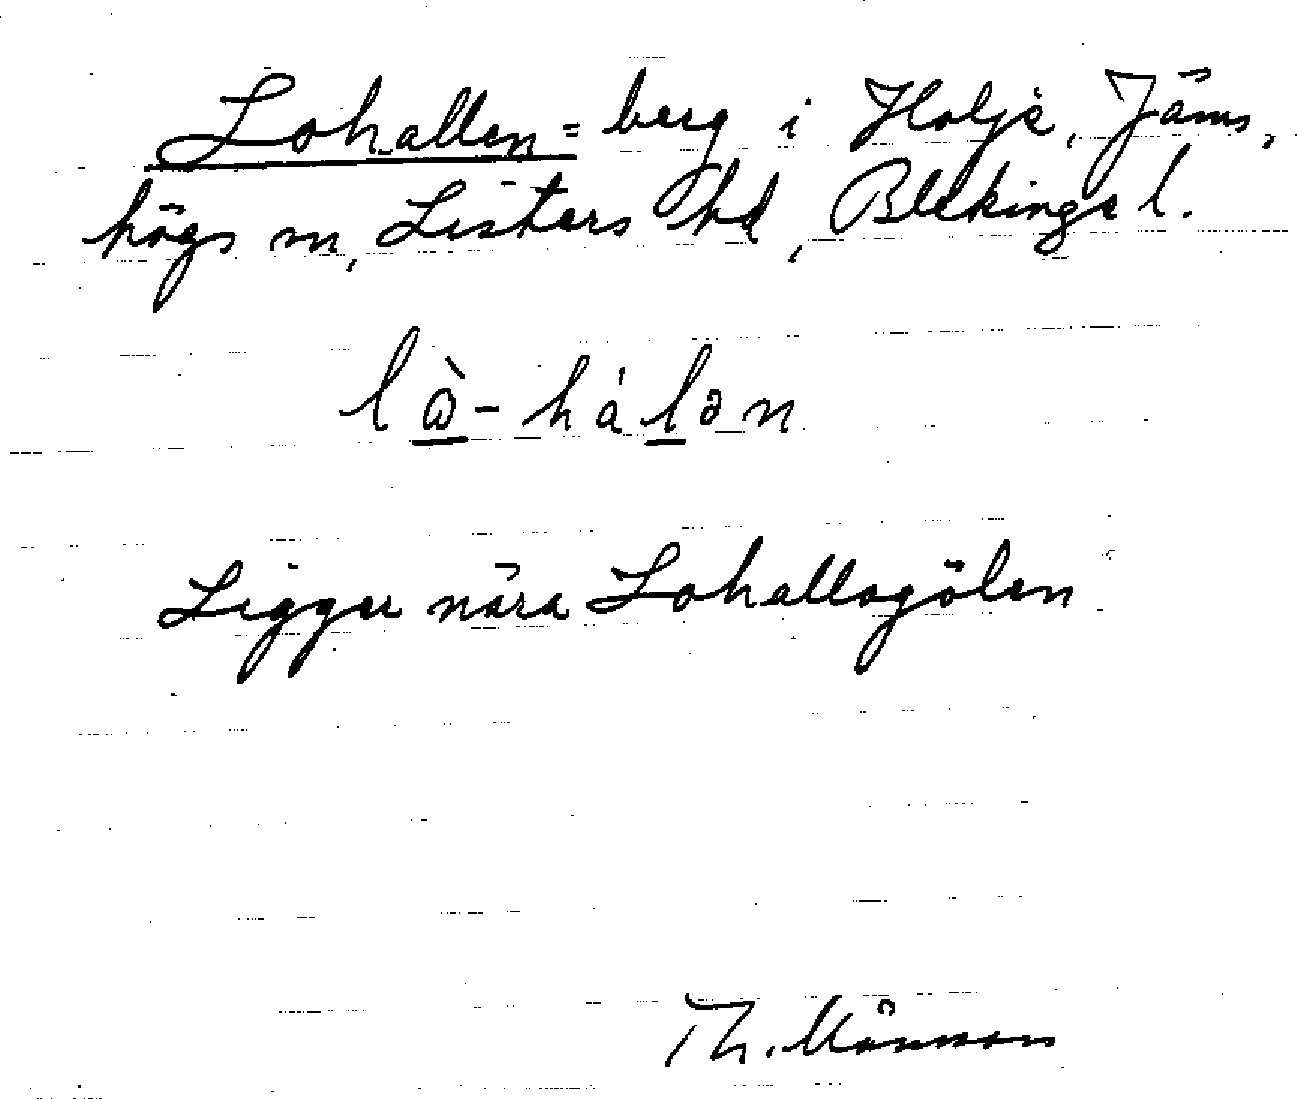 Lohallen = berg i Holje, Jäms,
högs sn, Listers hd, Blekinge l.
lὼ - hálən
Ligger nära Lohallagölen
Th. Månsson